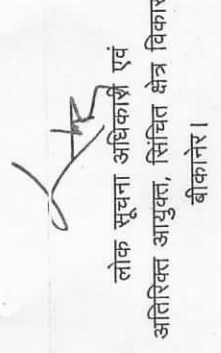 लोक सूचना अधिकारी एवं
अतिरिक्त आयुक्त, सिंचित क्षेत्र विकास
बीकानेर।